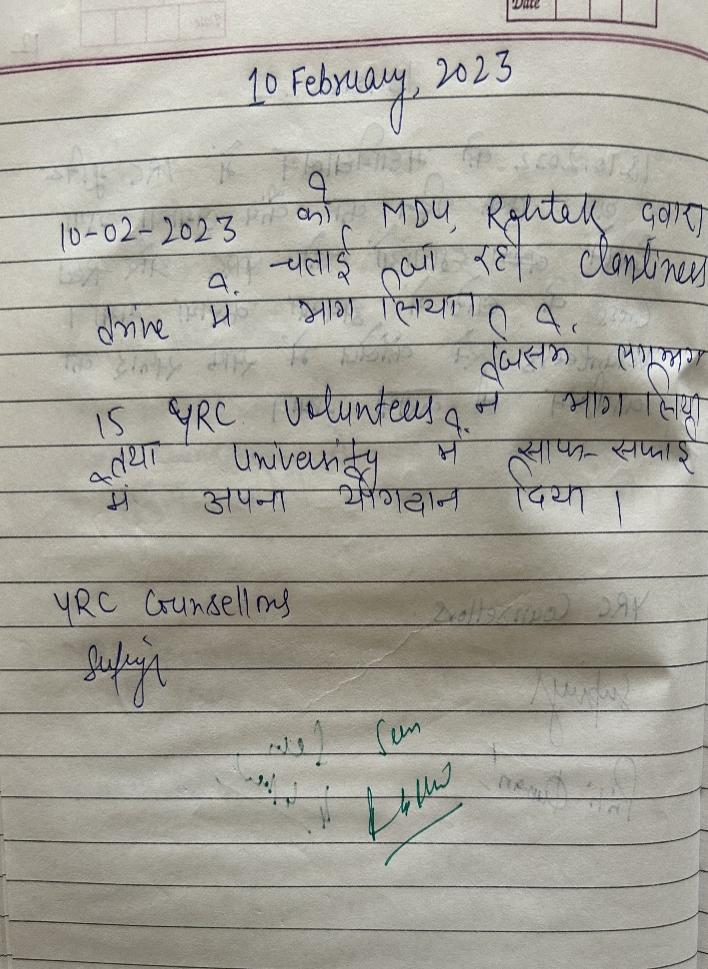 Date
10 February, 2023
10-02-2023 को MDU, Rohtak द्वारा
चलाई जा रही clealiness
drive में भाग लिया।
जिसमें लगभग
15 YRC volunteers ने भाग लिया
तथा University में साफ-सफाई
में अपना योगदान दिया।
YRC Counsellors
Seen